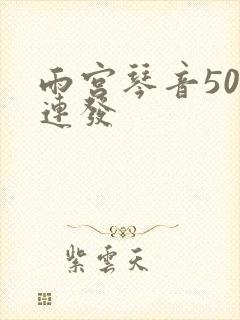 雨宮琴音50
連發
紫雲天